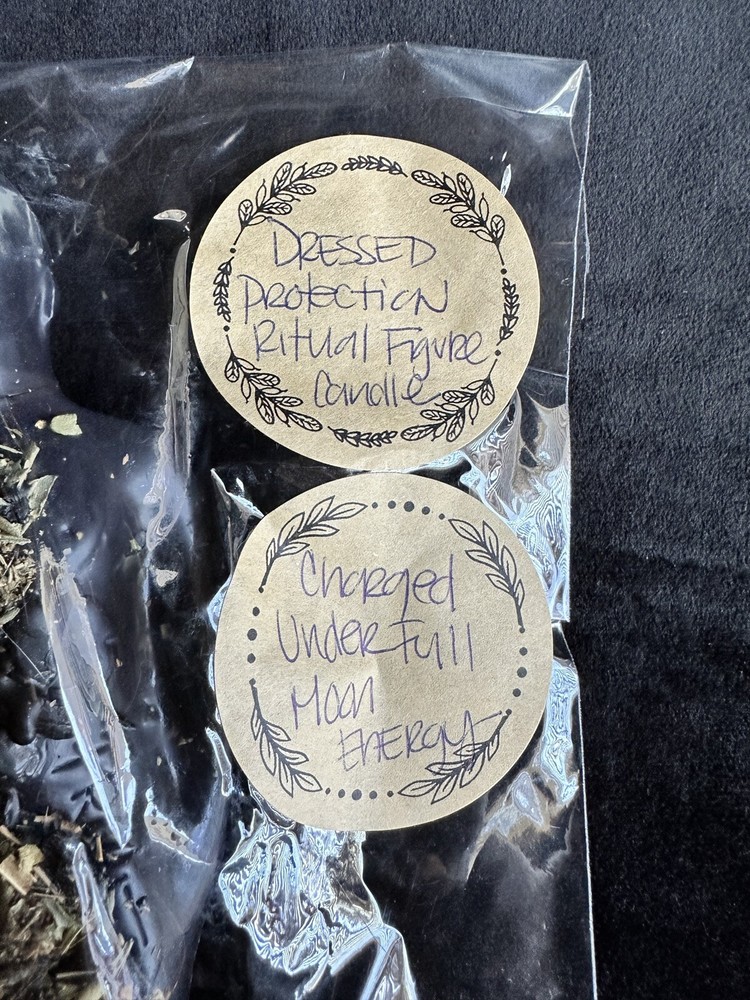 DRESSED
Protection
Ritual Figure
Candle
Charged
Under Full
Moon
Energy